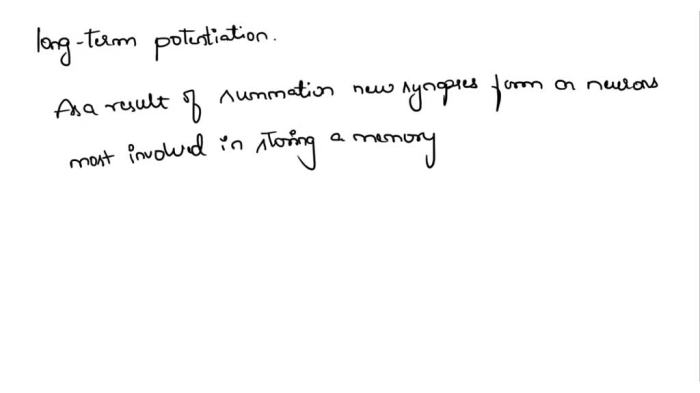 long-term potentiation.
As a result of summation new synapses form on neurons
most involved in storing a memory